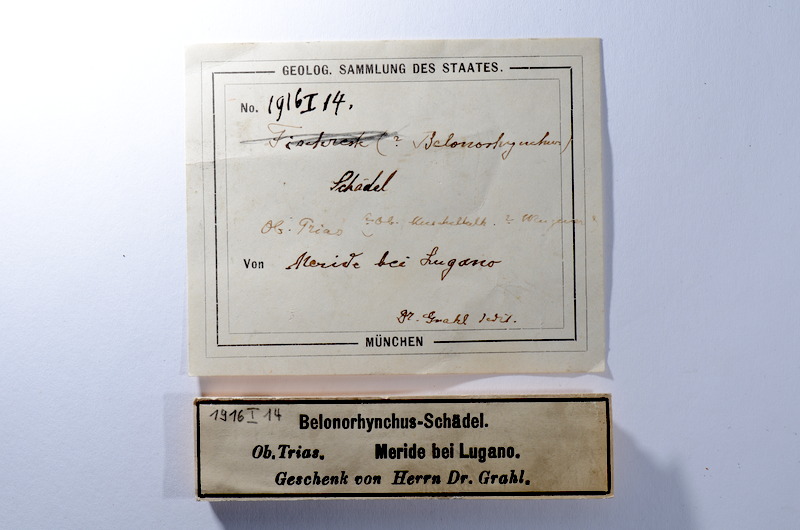 GEOLOG. SAMMLUNG DES STAATES.
No. 1916 I 14.
(? Belonorhynchus)
Schädel
Ob. Trias (? Ob. Muschelkalk. ?
Von Meride bei Lugano
Dr. Grahl ded.
MÜNCHEN
1916 I 14
Belonorhynchus-Schädel.
Ob. Trias. Meride bei Lugano.
Geschenk von Herrn Dr. Grahl.